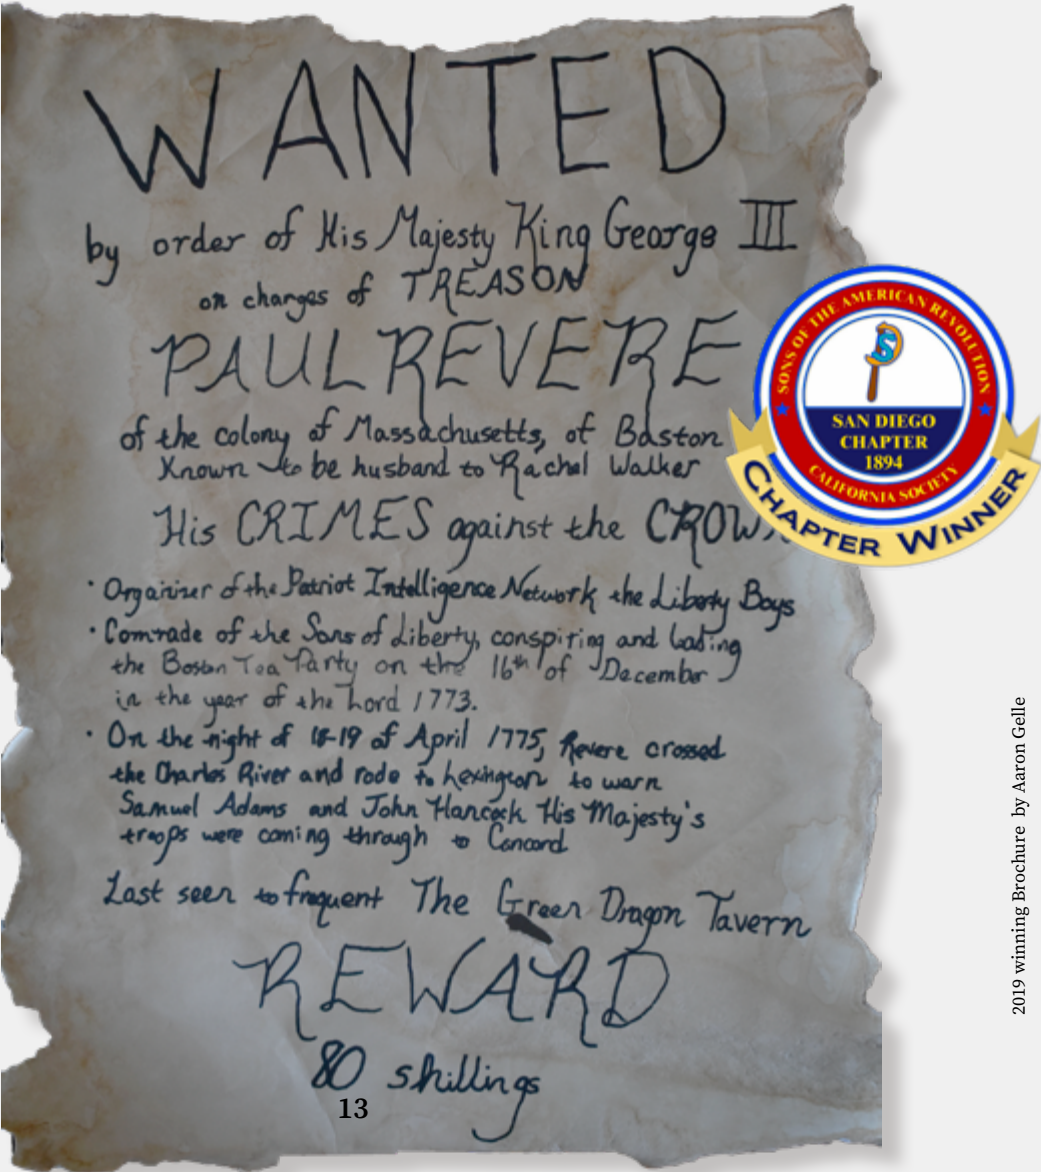 WANTED
by order of His Majesty King George III
on charges of TREASON
PAUL REVERE
of the colony of Massachusetts, of Boston
Known to be husband to Rachel Walker
His CRIMES against the CROW
· Organizer of the Patriot Intelligence Network the Liberty Boys
· Comrade of the Sons of Liberty, conspiring and
the Boston Tea Party on the 16th of December
in the year of the Lord 1773.
· On the night of 18-19 of April 1775, Revere crossed
the Charles River and rode to Lexington to warn
Samuel Adams and John Hancock His Majesty's
troops were coming through to Concord
Last seen to frequent The Green Dragon Tavern
REWARD
80 shillings
13
SONS OF THE AMERICAN REVOLUTION
S
SAN DIEGO
CHAPTER
1894
CALIFORNIA SOCIETY
CHAPTER WINNER
2019 winning Brochure by Aaron Gelle